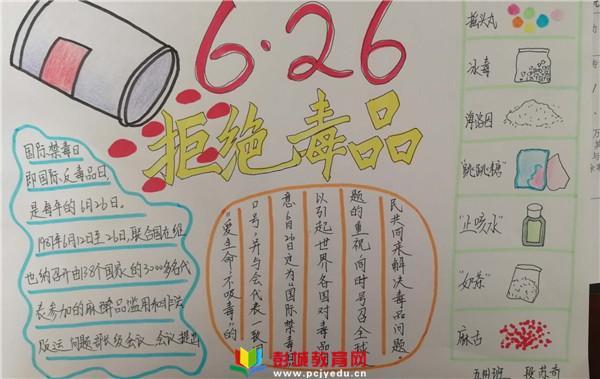 6·26
拒绝毒品
国际禁毒日
即国际反毒品日
是每年的6月26日。
1987年6月12日至26日,联合国在维
也纳召开由138个国家的3000多名代
表参加的麻醉品滥用和非法
贩运问题部长级会议.会议提出
“爱生命,不吸毒”的
口号,并与会代表一致
意6月26日定为“国际禁毒
以引起世界各国对毒品
题的重视,同时号召全球
民共同来解决毒品问题.
摇头丸
冰毒
海洛因
“跳跳糖”
“止咳水”
“奶茶”
麻古
彭城教育网
www.pcjyedu.cn